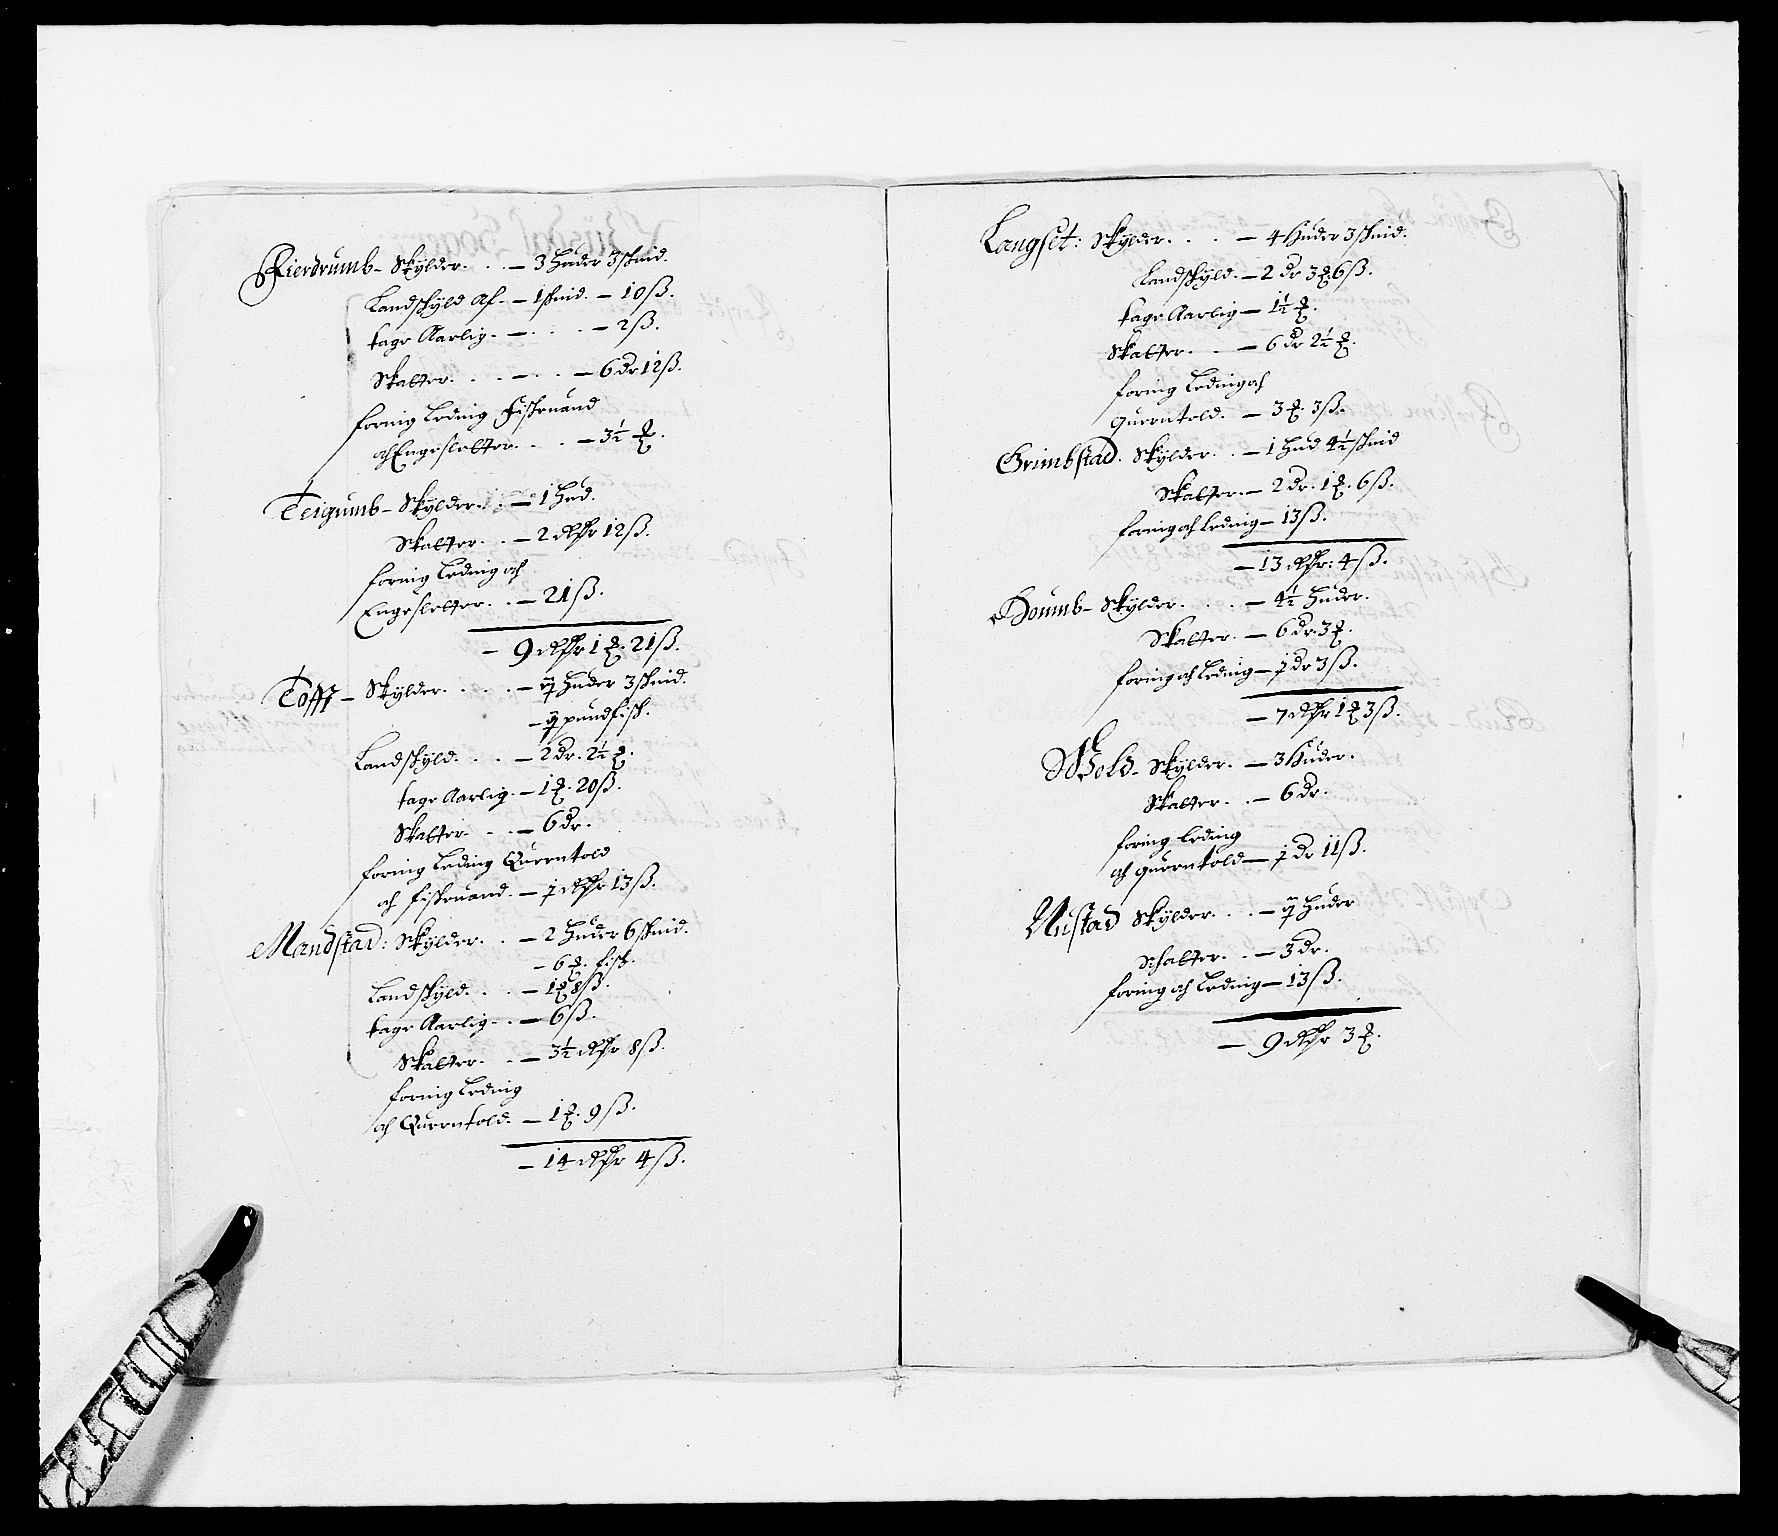 Fierdrumb - Skÿlder . . . - 3 Huder 3 skind.
Landskÿld Af - 1 skind. - 10 ß.
tage Aarlig. - . . . - 2 ß.
Skatter. . . - . . - 6 dr 12 ß.
foring Leding Fiskeuand
och Engesletter. . . . - 3½ ℔.
Teigumb - Skÿlder. . . - 1 Hud.
Skatter . . - 2 Rdr 12 ß.
foring Leding och
Engesletter. . . - 21 ß.
- 9 Rdr 1 ℔. 21 ß.
Tofft - Skÿlder. . . . . - Huder 3 skind.
- pund fisk.
Landskÿld. . . . - 2 dr. 2½ ℔.
tage Aarlig. - 1 ℔. 20 ß.
Skatter. . . . - 6 dr.
foring Leding Querntold
och fiskeuand. - 1 Rdr 13 ß.
Mandstad: Skÿlder. . . - 2 Huder 6 skind.
- 6 ℔. fisk.
Landskÿld. . . . - 1 ℔ 8 ß.
tage Aarlig. . . - 6 ß.
Skatter. . . - 3½ Rdr 8 ß.
foring Leding
och Querntold. - 1 ℔. 9 ß.
- 14 Rdr 4 ß.
Langset: Skÿlder. . . . - 4 Huder 3 skind.
Landskÿld. - 2 dr 3 ℔. 6 ß.
tage Aarlig - 1½ ℔.
Skatter. . . - 6 dr 2½ ℔.
foring Leding och
Querntold. - 3 ℔. 3 ß.
Grimbstad. Skÿlder. . - 1 Hud 4½ skind
Skatter. - 2 dr. 1 ℔. 6 ß.
foring och Leding - 13 ß.
- 13 Rdr: 4 ß.
Doumb - Skÿlder. . . . - 4½ Huder.
Skatter. - 6 dr. 3 ℔.
foring och Leding - 1 dr 3 ß.
- 7 Rdr 1 ℔ 3 ß.
Wold - Skÿlder. - 3 Huder.
Skatter. . - 6 dr.
foring Leding
och querntold - 1 dr 11 ß.
Nustad Skÿlder. . . - Huder
Schatter. . - 3 dr.
foring och Leding - 13 ß.
- 9 Rdr 3 ℔.